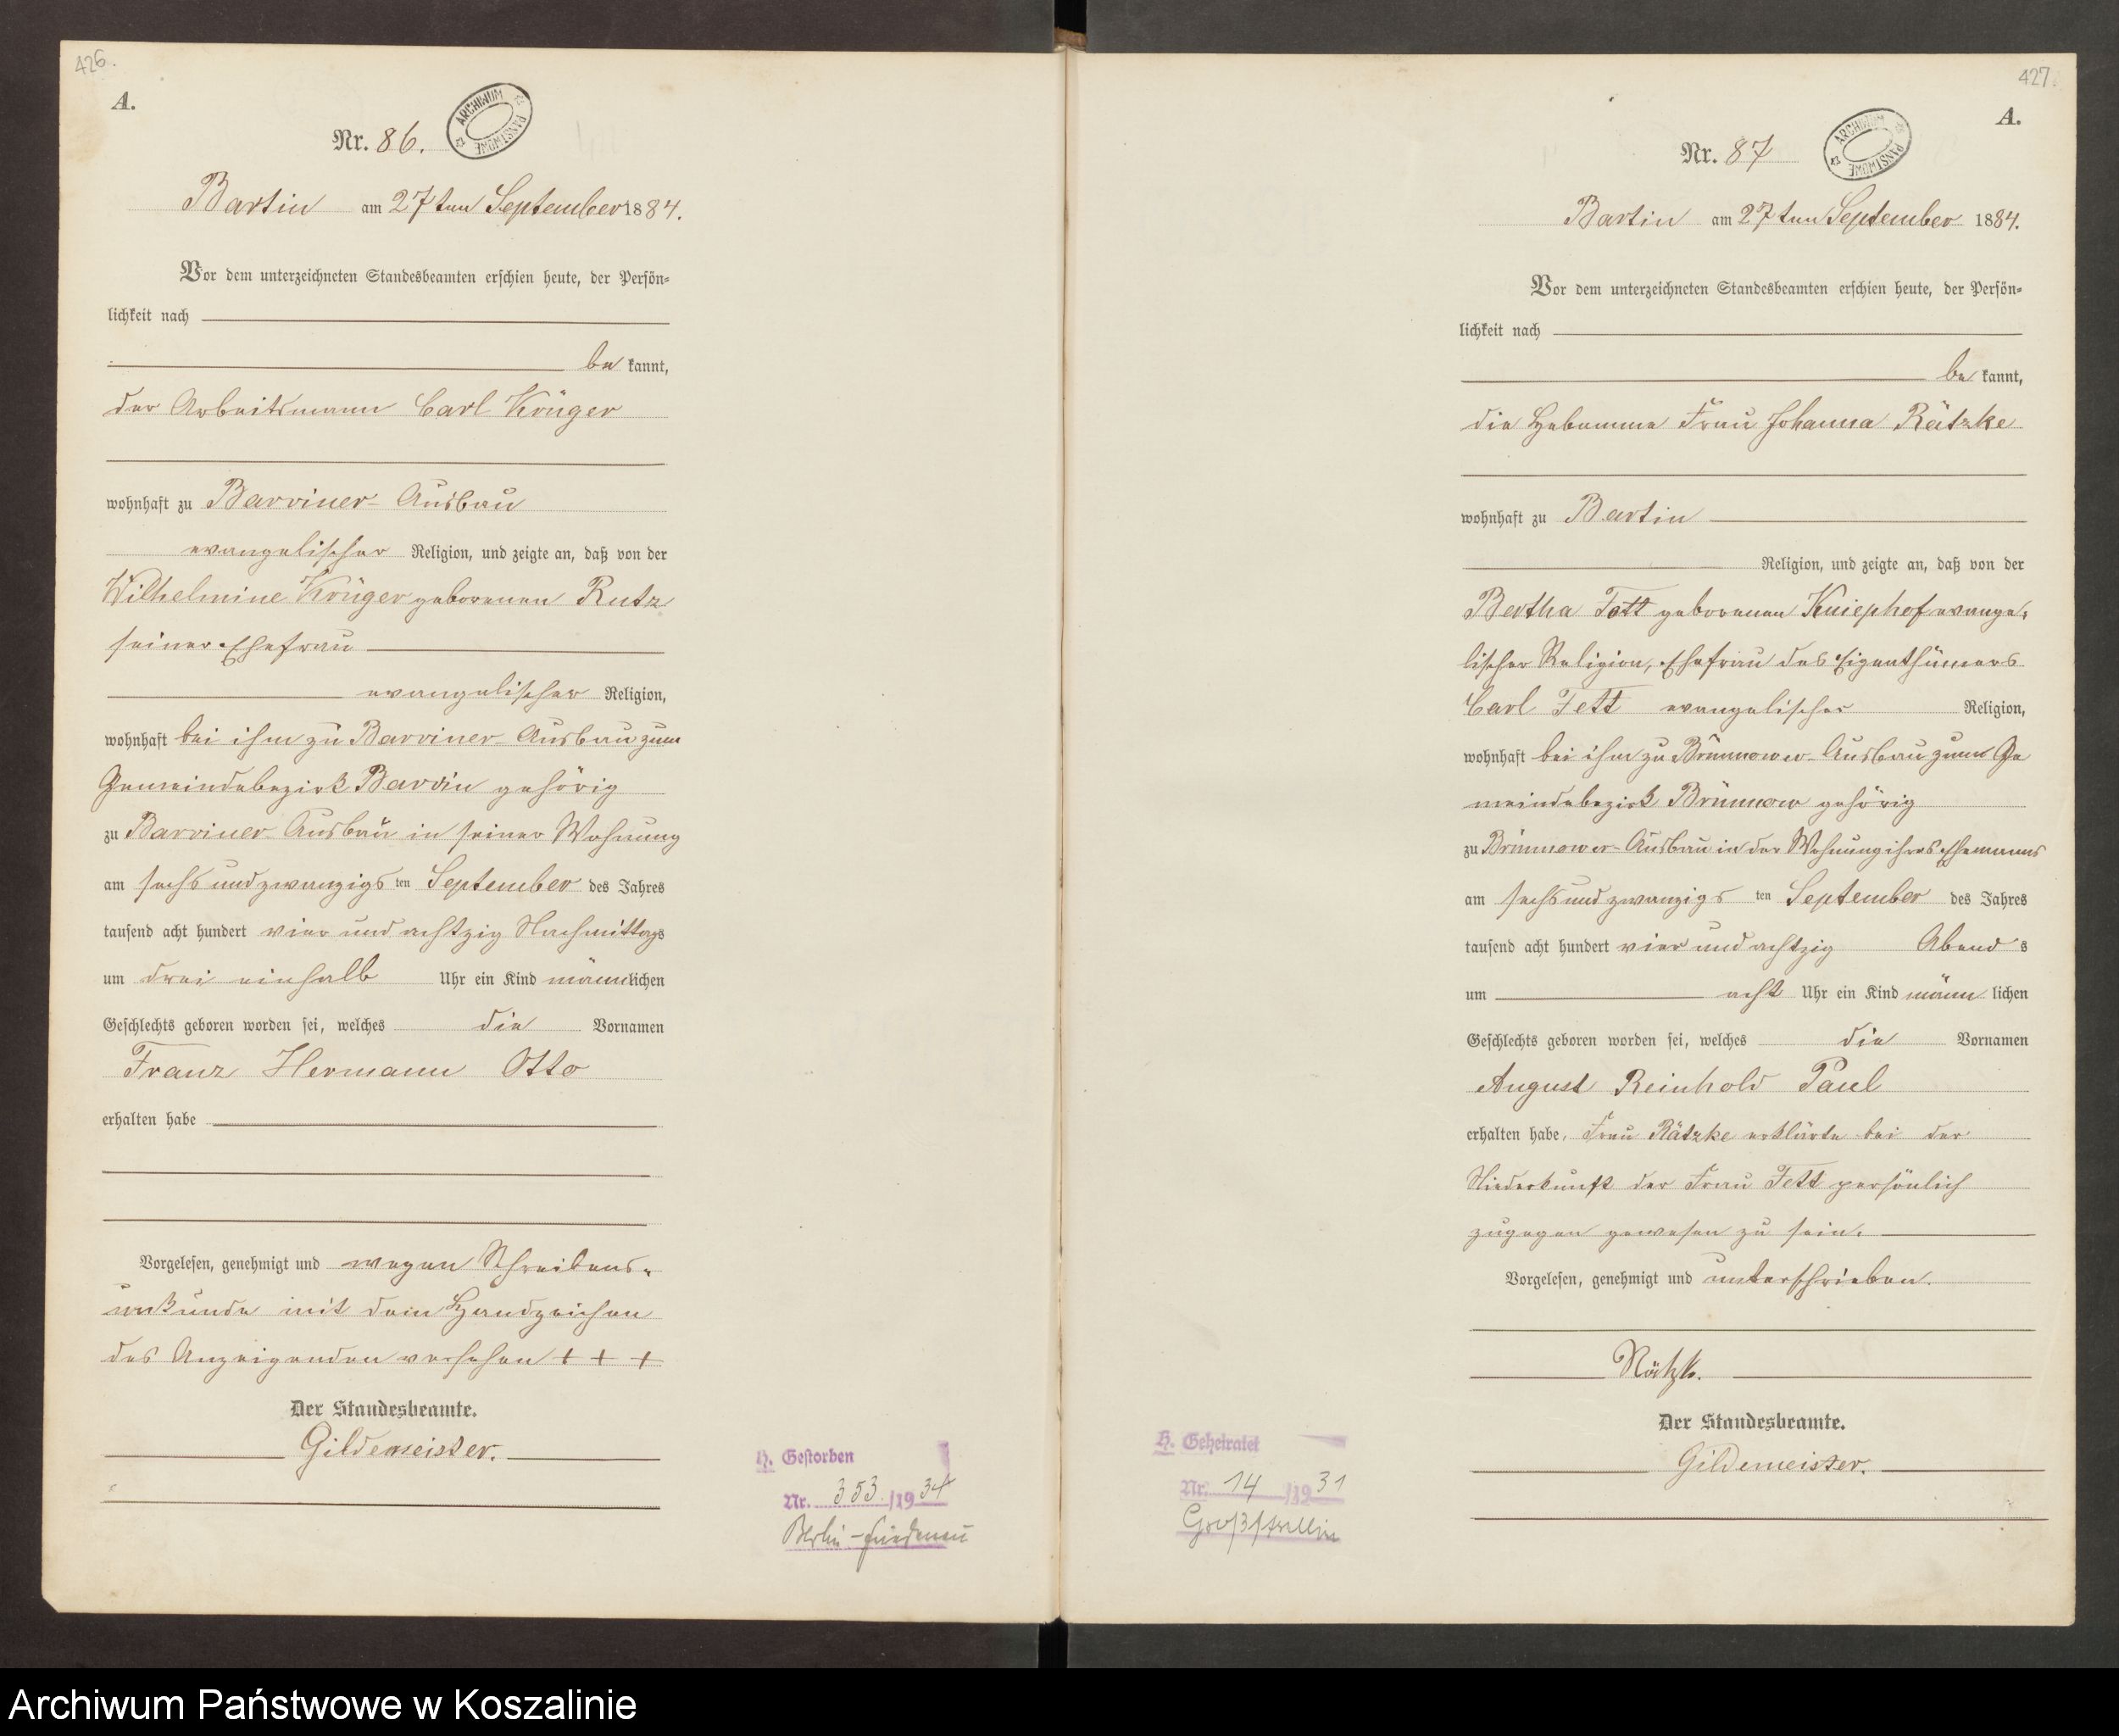 426.
A.
Nr. 86.
ARCHIWUM PAŃSTWOWE
Bartin am 27ten September 1884.
Vor dem unterzeichneten Standesbeamten erschien heute, der Persön=
lichkeit nach
be kannt,
der Arbeitsmann Carl Krüger
wohnhaft zu Barviner-Ausbau
evangelischer Religion, und zeigte an, daß von der
Wilhelmine Krüger geborenen Rutz
seiner Ehefrau
evangelischer Religion,
wohnhaft bei ihm zu Barviner-Ausbau zum
Gemeindebezirk Barvin gehörig
zu Barviner-Ausbau in seiner Wohnung
am sechs und zwanzigs ten September des Jahres
tausend acht hundert vier und achtzig Nachmittags
um drei einhalb Uhr ein Kind männlichen
Geschlechts geboren worden sei, welches die Vornamen
Franz Hermann Otto
erhalten habe
Vorgelesen, genehmigt und wegen Schreibens=
unkunde mit dem Handzeichen
des Anzeigenden versehen + + +
Der Standesbeamte.
Gildemeister.
H. Gestorben
Nr. 353 /1934
Berlin-Friedenau
427.
A.
Nr. 87
ARCHIWUM PAŃSTWOWE
Bartin am 27ten September 1884.
Vor dem unterzeichneten Standesbeamten erschien heute, der Persön=
lichkeit nach
be kannt,
die Hebamme Frau Johanna Rätzke
wohnhaft zu Bartin
Religion, und zeigte an, daß von der
Bertha Fett geborenen Kniephof evange=
lischer Religion, Ehefrau des Eigenthümers
Carl Fett evangelischer Religion,
wohnhaft bei ihm zu Brünnower-Ausbau zum Ge
meindebezirk Brünnow gehörig
zu Brünnower-Ausbau in der Wohnung ihres Ehemanns
am sechs und zwanzigs ten September des Jahres
tausend acht hundert vier und achtzig Abend s
um acht Uhr ein Kind männ lichen
Geschlechts geboren worden sei, welches die Vornamen
August Reinhold Paul
erhalten habe. Frau Rätzke erklärte bei der
Niederkunft der Frau Fett persönlich
zugegen gewesen zu sein.
Vorgelesen, genehmigt und unterschrieben.
Rätzk.
Der Standesbeamte.
Gildemeister.
H. Geheiratet
Nr. 14 /1931
Archiwum Państwowe w Koszalinie